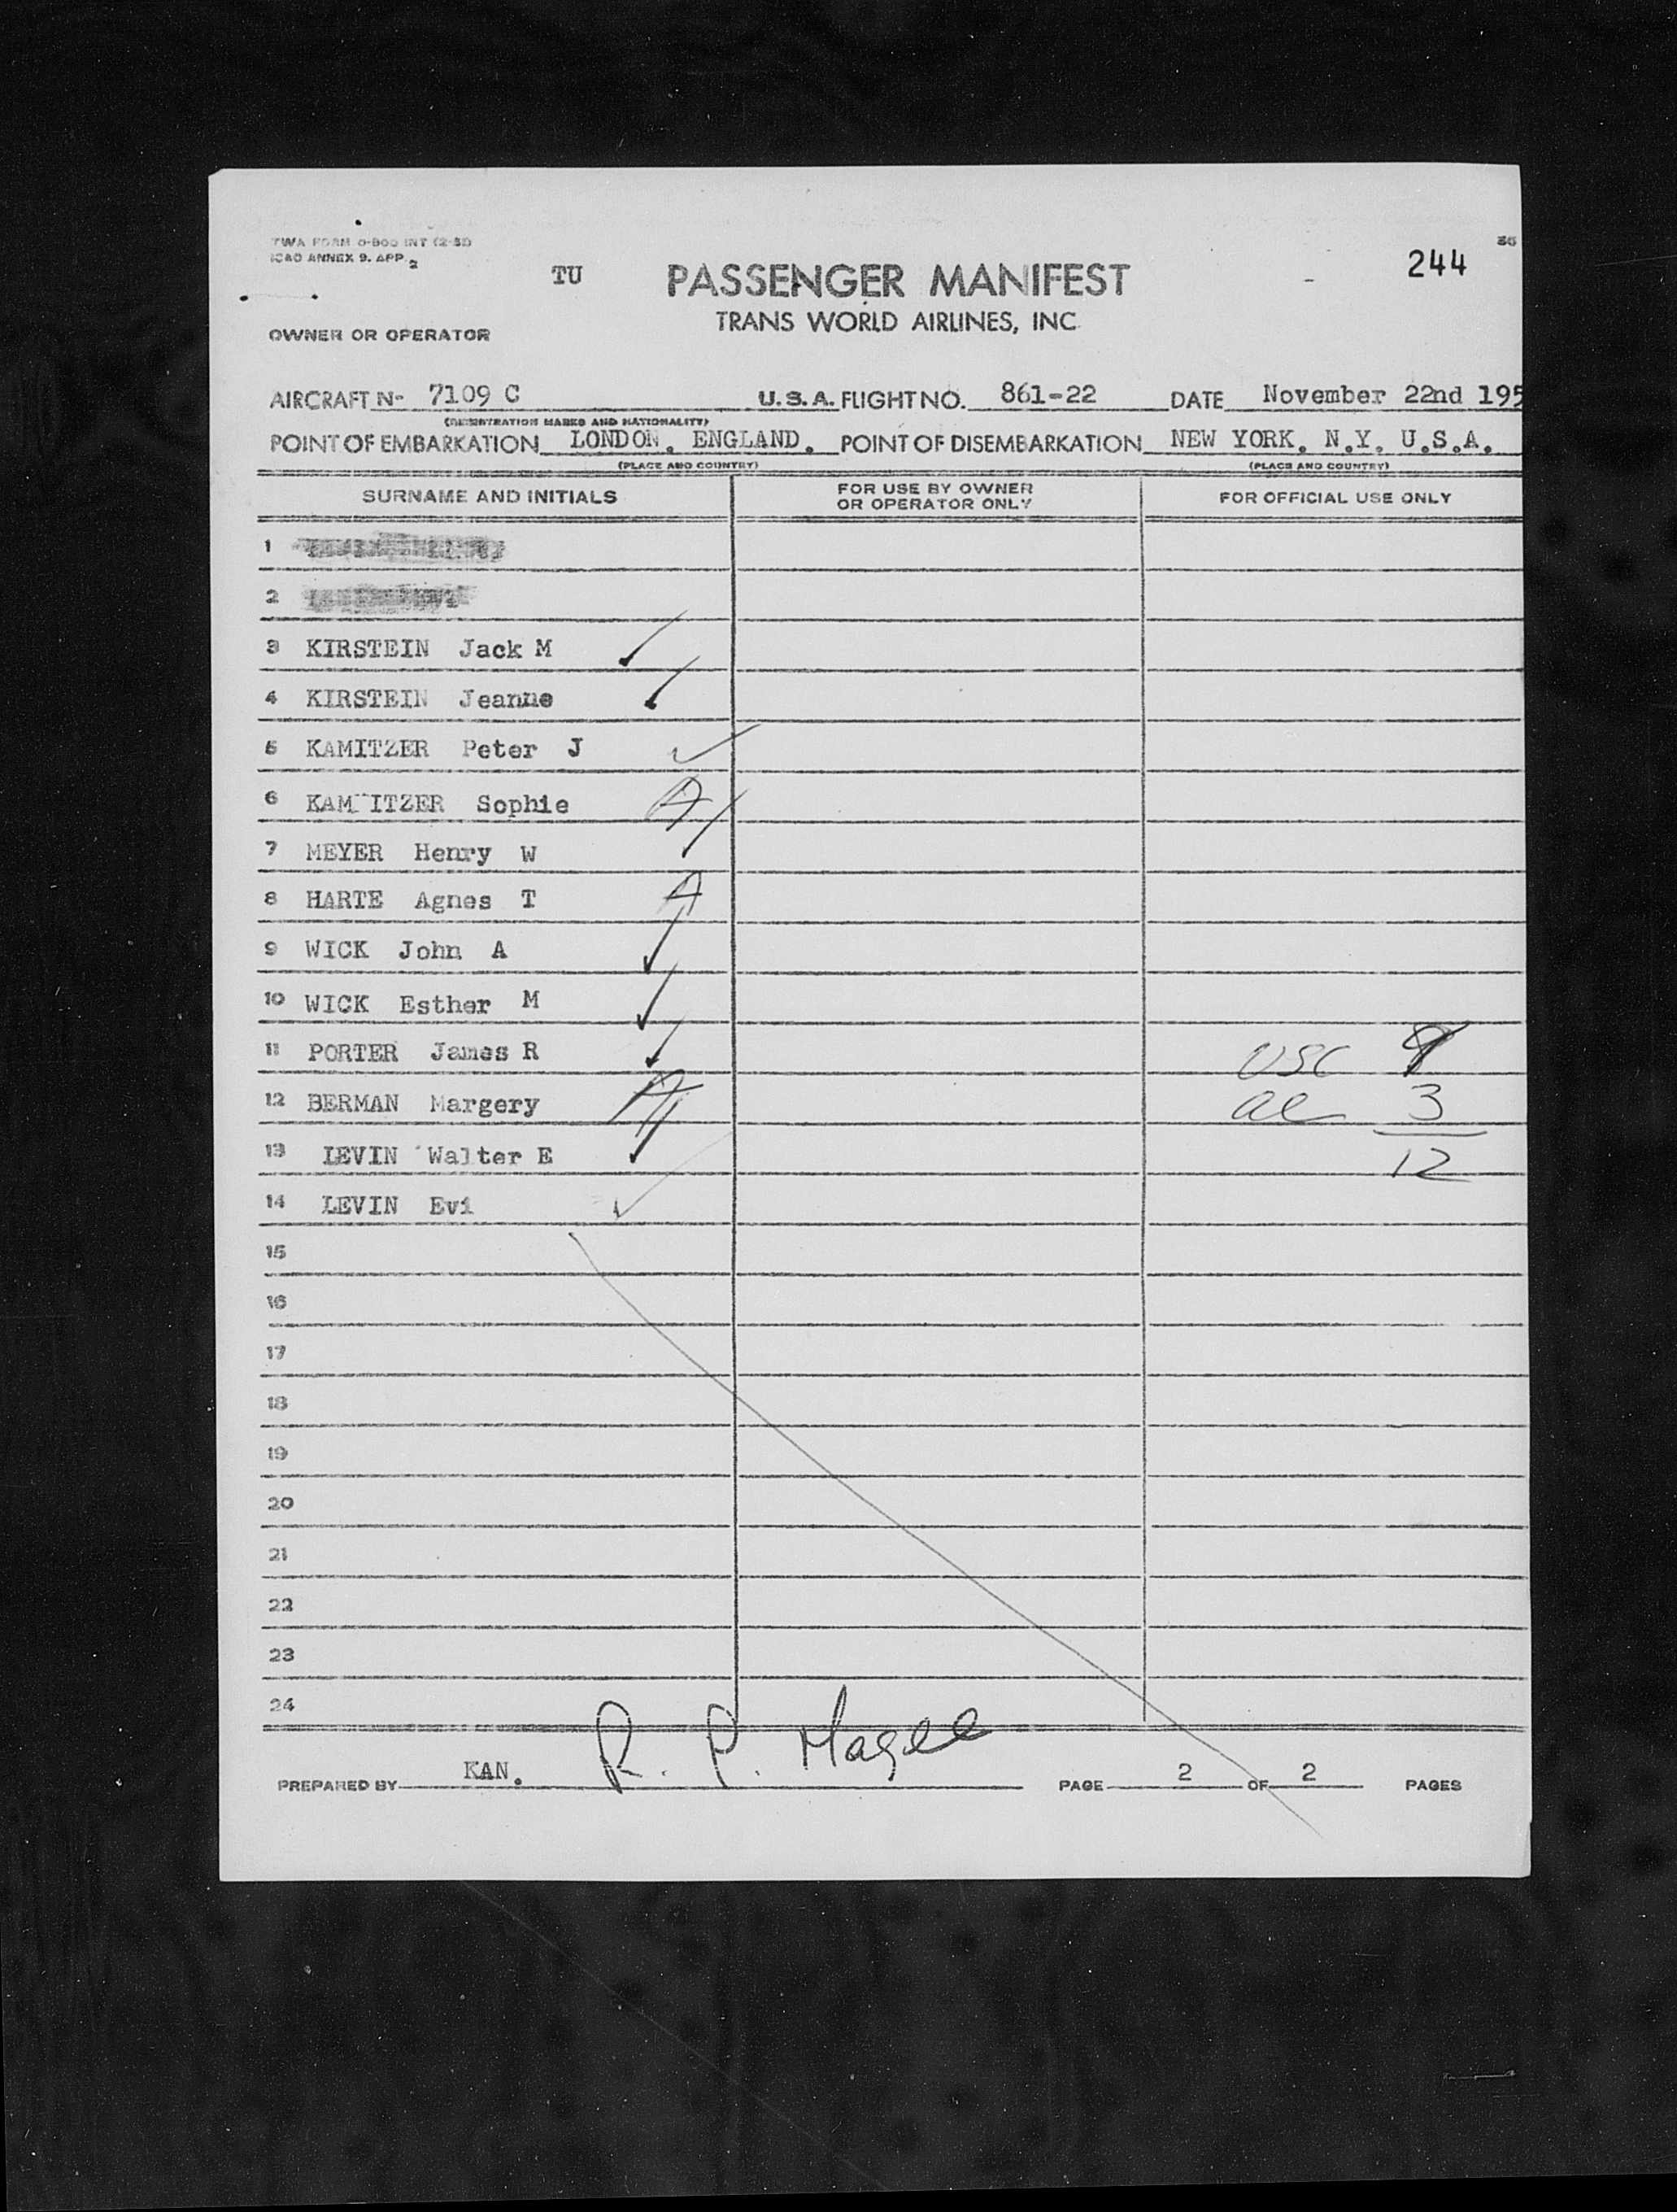 TWA FORM O-800 INT (2-52) 36
ICAO ANNEX 9. APP. 2
TU PASSENGER MANIFEST 244
TRANS WORLD AIRLINES, INC
OWNER OR OPERATOR
AIRCRAFT N- 7109 C U.S.A. FLIGHT NO. 861-22 DATE November 22nd 195
(REGISTRATION MARKS AND NATIONALITY)
POINT OF EMBARKATION LONDON. ENGLAND. POINT OF DISEMBARKATION NEW YORK. N.Y. U.S.A.
(PLACE AND COUNTRY) (PLACE AND COUNTRY)
SURNAME AND INITIALS FOR USE BY OWNER OR OPERATOR ONLY FOR OFFICIAL USE ONLY
1
2
3 KIRSTEIN Jack M
4 KIRSTEIN Jeanne
5 KAMITZER Peter J
6 KAM ITZER Sophie A
7 MEYER Henry W
8 HARTE Agnes T A
9 WICK John A
10 WICK Esther M
11 PORTER James R USC 9
12 BERMAN Margery A al 3
13 LEVIN Walter E 12
14 LEVIN Evi
15
16
17
18
19
20
21
22
23
24
PREPARED BY KAN. R. P. Magee PAGE 2 OF 2 PAGES